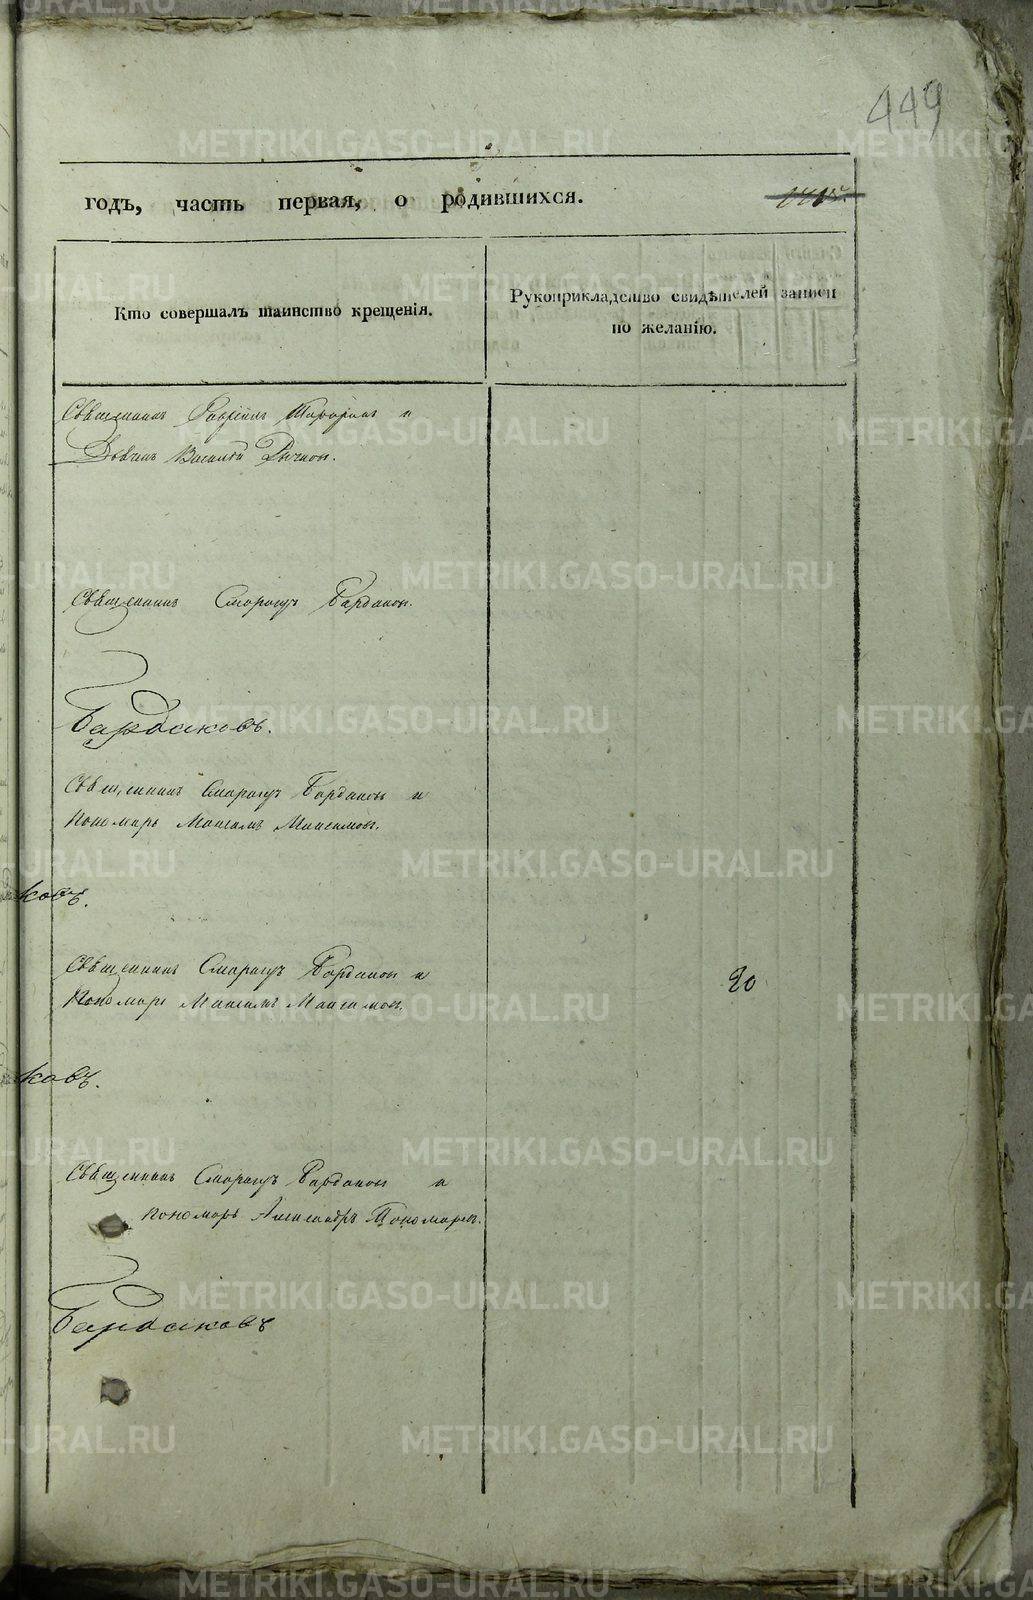 449
годъ, часть первая, о родившихся.
Кто совершалъ таинство крещенія.
Рукоприкладство свидѣтелей записи
по желанію.
Священникъ
Дьячекъ Василій
Священникъ Смарагдъ Бардаковъ.
Бардаковъ.
Священникъ Смарагдъ Бардаковъ и
Пономарь Максимъ Максимовъ.
ковъ.
Священникъ Смарагдъ Бардаковъ и
Пономарь Максимъ Максимовъ.
20
ковъ.
Священникъ Смарагдъ Бардаковъ и
пономарь Александръ Пономаревъ.
Бардаковъ
METRIKI.GASO-URAL.RU